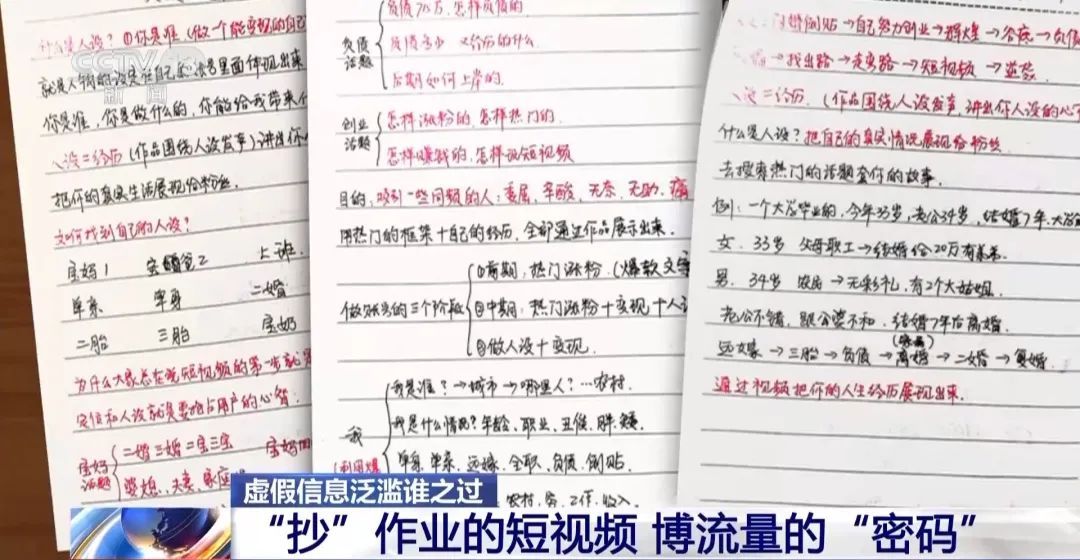 CCTV 13
新闻
什么是人设？①你是谁（做一个能变现的自己
就是人物的设定在自己账号里面体现出来
你是谁，你是做什么的，你能给我带来什
人设=经历（作品围绕人设发声）讲出你
把你的真实生活展现给粉丝
如何找到自己的人设？
宝妈1 宝爸2 上班
单亲 单身 二婚
二胎 三胎 宝奶
为什么大家总在说短视频的第一步就是
定位和人设就是要抢占用户的心智：
宝妈话题
二婚 三婚 二宝三宝 宝妈
婆媳、夫妻、家庭
负债话题
负债70万，怎样负债的
负债多少 又经历的什么
后期如何上岸的
创业话题
怎样涨粉的，怎样热门的
怎样赚钱的，怎样做短视频
目的：吸引一些同频的人：委屈、辛酸、无奈、无助、痛
用热门的框架十自己的经历，全部通过作品展示出来
做账号的三个阶段
①前期：热门涨粉（爆款文字
②中期：热门涨粉十变现十人设
③做人设十变现
我
我是谁？→城市→哪里人？…农村
我是什么情况？年龄、职业、丑、矮、胖、矮
单身、单亲、远嫁、全职、负债、倒贴
农村、穷、工作、收入
（利用爆
→自己努力创业→辉煌→谷底→负债
→找出路→走弯路→短视频→逆袭
人设=经历（作品围绕人设发声，讲出你人设的心
什么是人设？把自己的真实情况展现给粉丝
去搜索热门的话题套你的故事
例：一个大龄毕业的，今年33岁，老公34岁，结婚7年，大龄
女. 33岁 父母职工→结婚给20万有嫁妆
男. 34岁 农民→无彩礼，有2个大姑姐
老公不错，跟公婆不和，结婚7年后离婚
远嫁→三胎→负债→离婚→二婚→复婚
通过视频把你的人生经历展现出来
虚假信息泛滥谁之过
“抄”作业的短视频 博流量的“密码”